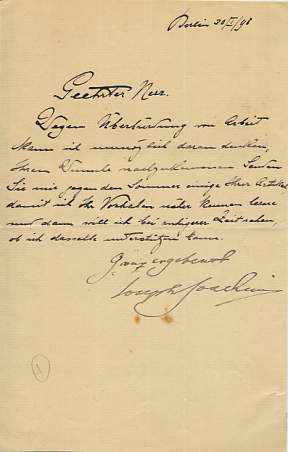 Berlin 30/I/98
Geehrter Herr.
Wegen Überbürdung von Arbeit
kann ich unmöglich daran denken,
Ihrem Wunsche nachzukommen. Senden
Sie mir gegen den Sommer einige Ihrer Artikel
damit ich Ihr Vorhaben näher kennen lerne
und dann will ich bei ruhigerer Zeit sehen,
ob ich dasselbe unterstützen kann.
Ganz ergebenst
Joseph Joachim